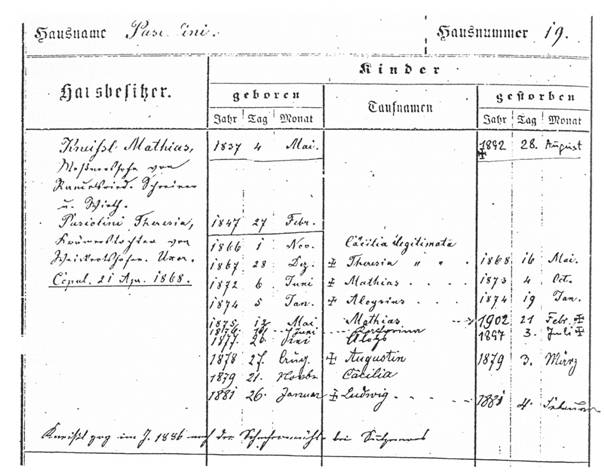 Hausname Pasolini. Hausnummer 19.
Hausbesitzer. Kinder
geboren Taufnamen gestorben
Jahr Tag Monat Jahr Tag Monat
Kneißl Mathias, 1837 4 Mai. 1892 28. August
Meßnerssohn von
Schreiner
u. Wirth.
Pasolini Theresia, 1847 27 Febr.
Krämerstochter von 1866 1 Nov. Cäcilia legitimata
1867 28 Dez. Theresia " " 1868 16 Mai.
Copul. 21 Apr. 1868. 1872 6 Juni Mathias 1873 4 Oct.
1874 5 Jan. Aloysius 1874 19 Jan.
1875 12 Mai Mathias 1902 21 Febr.
Juni Katharina 1897 3. Juli
1877 26 Juni Aloys
1878 27. Aug. Augustin 1879 3. März
1879 21. Novbr Cäcilia
1881 26. Januar Ludwig 1881 4. Februar
Kneißl zog im J. 1886 nach der Schachenmühle bei Sulzemoos